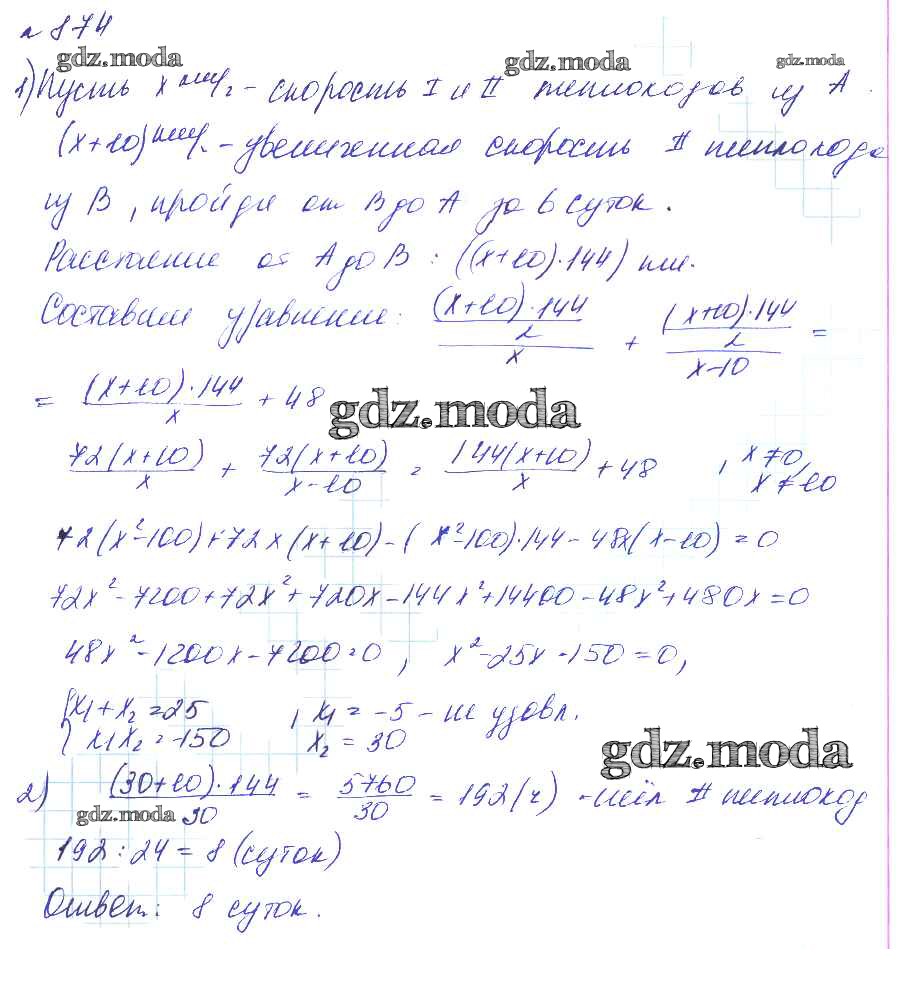 № 874
gdz.moda gdz.moda gdz.moda
1) Пусть x км/ч - скорость I и II теплоходов из A.
(x+10) км/ч - увеличенная скорость II теплохода
из B, пройдя от B до A за 6 суток.
Расстояние от A до B : ((x+10)·144) км.
Составим уравнение: ((x+10)·144/2)/x + ((x+10)·144/2)/(x-10) =
= (x+10)·144/x + 48
gdz.moda
72(x+10)/x + 72(x+10)/(x-10) = 144(x+10)/x + 48 , x≠0, x≠10
72(x²-100)+72x(x+10)-(x²-100)·144-48x(x-10)=0
72x²-7200+72x²+720x-144x²+14400-48x²+480x=0
48x²-1200x-7200=0, x²-25x-150=0,
{x₁+x₂=25 , x₁=-5 - не удовл.
{x₁x₂=-150 x₂=30
gdz.moda
2) (30+10)·144/30 = 5760/30 = 192(ч) - шёл II теплоход
gdz.moda
192:24=8 (суток)
Ответ: 8 суток.